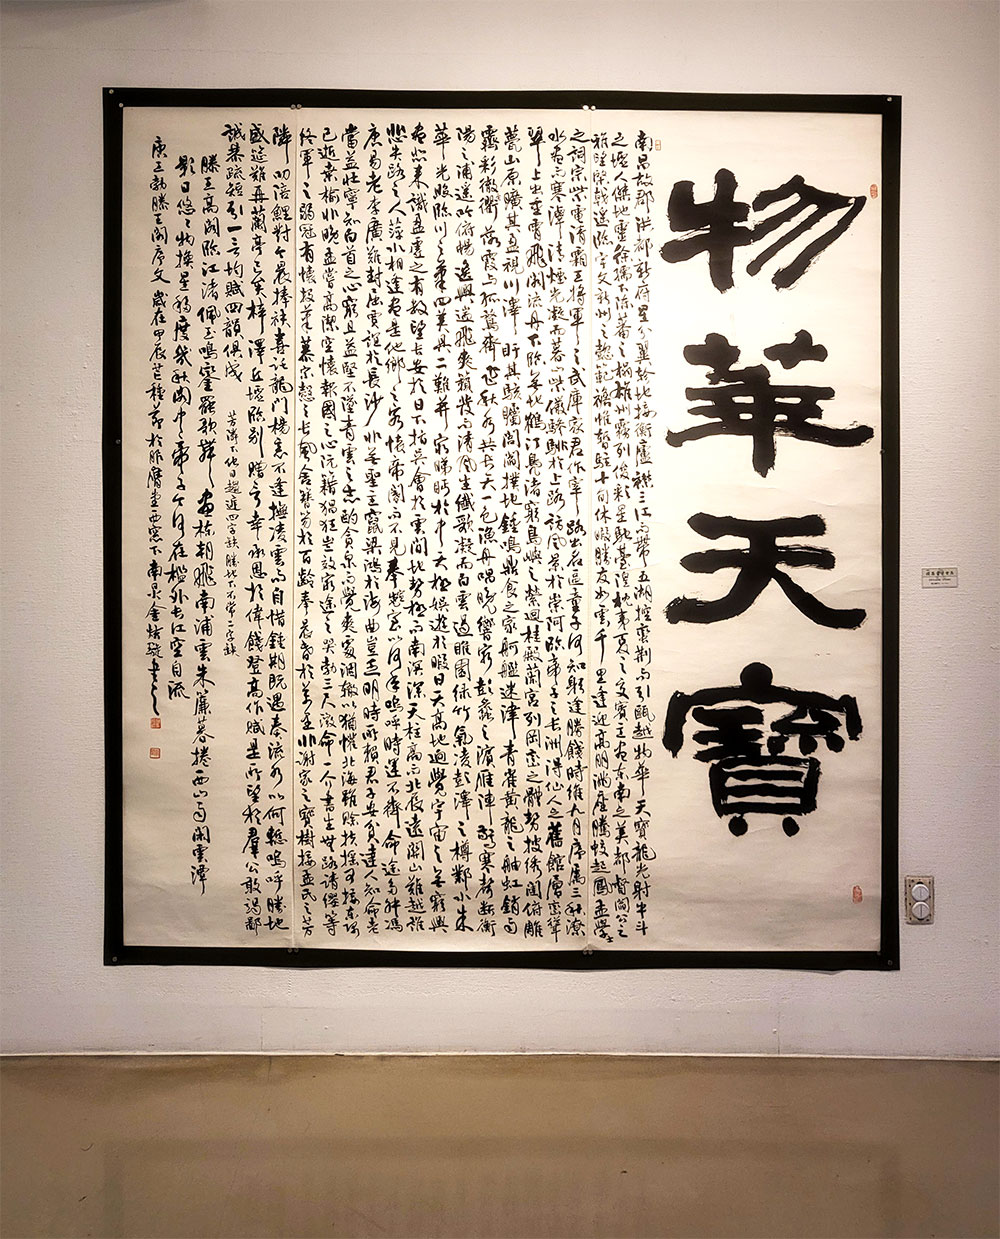 物華天寶
南昌故郡洪都新府星分翼軫地接衡廬襟三江而帶五湖控蠻荊而引甌越物華天寶龍光射牛斗
之墟人傑地靈徐孺下陳蕃之榻雄州霧列俊彩星馳臺隍枕夷夏之交賓主盡東南之美都督閻公之
雅望棨戟遙臨宇文新州之懿範襜帷暫駐十旬休暇勝友如雲千里逢迎高朋滿座騰蛟起鳳孟學士
之詞宗紫電清霜王將軍之武庫家君作宰路出名區童子何知躬逢勝餞時維九月序屬三秋潦
水盡而寒潭清煙光凝而暮山紫儼驂騑於上路訪風景於崇阿臨帝子之長洲得仙人之舊館層巒聳
翠上出重霄飛閣流丹下臨無地鶴汀鳧渚窮島嶼之縈迴桂殿蘭宮列岡巒之體勢披綉闥俯雕
甍山原曠其盈視川澤盱其駭矚閭閻撲地鐘鳴鼎食之家舸艦迷津青雀黃龍之舳虹銷雨
霽彩徹衢落霞與孤鶩齊飛秋水共長天一色漁舟唱晚響窮彭蠡之濱雁陣驚寒聲斷衡
陽之浦遙吟俯暢逸興遄飛爽籟發而清風生纖歌凝而白雲遏睢園綠竹氣凌彭澤之樽鄴水朱
華光照臨川之筆四美具二難并窮睇眄於中天極娛遊於暇日天高地迥覺宇宙之無窮興
盡悲來識盈虛之有數望長安於日下指吳會於雲間地勢極而南溟深天柱高而北辰遠關山難越誰
悲失路之人萍水相逢盡是他鄉之客懷帝閽而不見奉宣室以何年嗚呼時運不齊命途多舛馮
唐易老李廣難封屈賈誼於長沙非無聖主竄梁鴻於海曲豈乏明時所賴君子安貧達人知命老
當益壯寧知白首之心窮且益堅不墜青雲之志酌貪泉而覺爽處涸轍以猶懽北海雖賒扶搖可接東隅
已逝桑榆非晚孟嘗高潔空懷報國之心阮籍猖狂豈效窮途之哭勃三尺微命一介書生無路請纓等
終軍之弱冠有懷投筆慕宗慤之長風舍簪笏於百齡奉晨昏於萬里非謝家之寶樹接孟氏之芳
隣叨陪鯉對今晨捧袂喜託龍門楊意不逢撫凌雲而自惜鍾期既遇奏流水以何慙嗚呼勝地
盛筵難再蘭亭已矣梓澤丘墟臨別贈言幸承恩於偉餞登高作賦是所望於羣公敢竭鄙
誠恭疏短引一言均賦四韻俱成 芳隣下他日趨庭四字缺 勝地下不常二字缺
滕王高閣臨江渚佩玉鳴鑾罷歌舞畫棟朝飛南浦雲朱簾暮捲西山雨閑雲潭
影日悠々物換星移度幾秋閣中帝子今何在檻外長江空自流
唐王勃滕王閣序文 歲在甲辰芒種節於 堂西窓下南泉金 書之